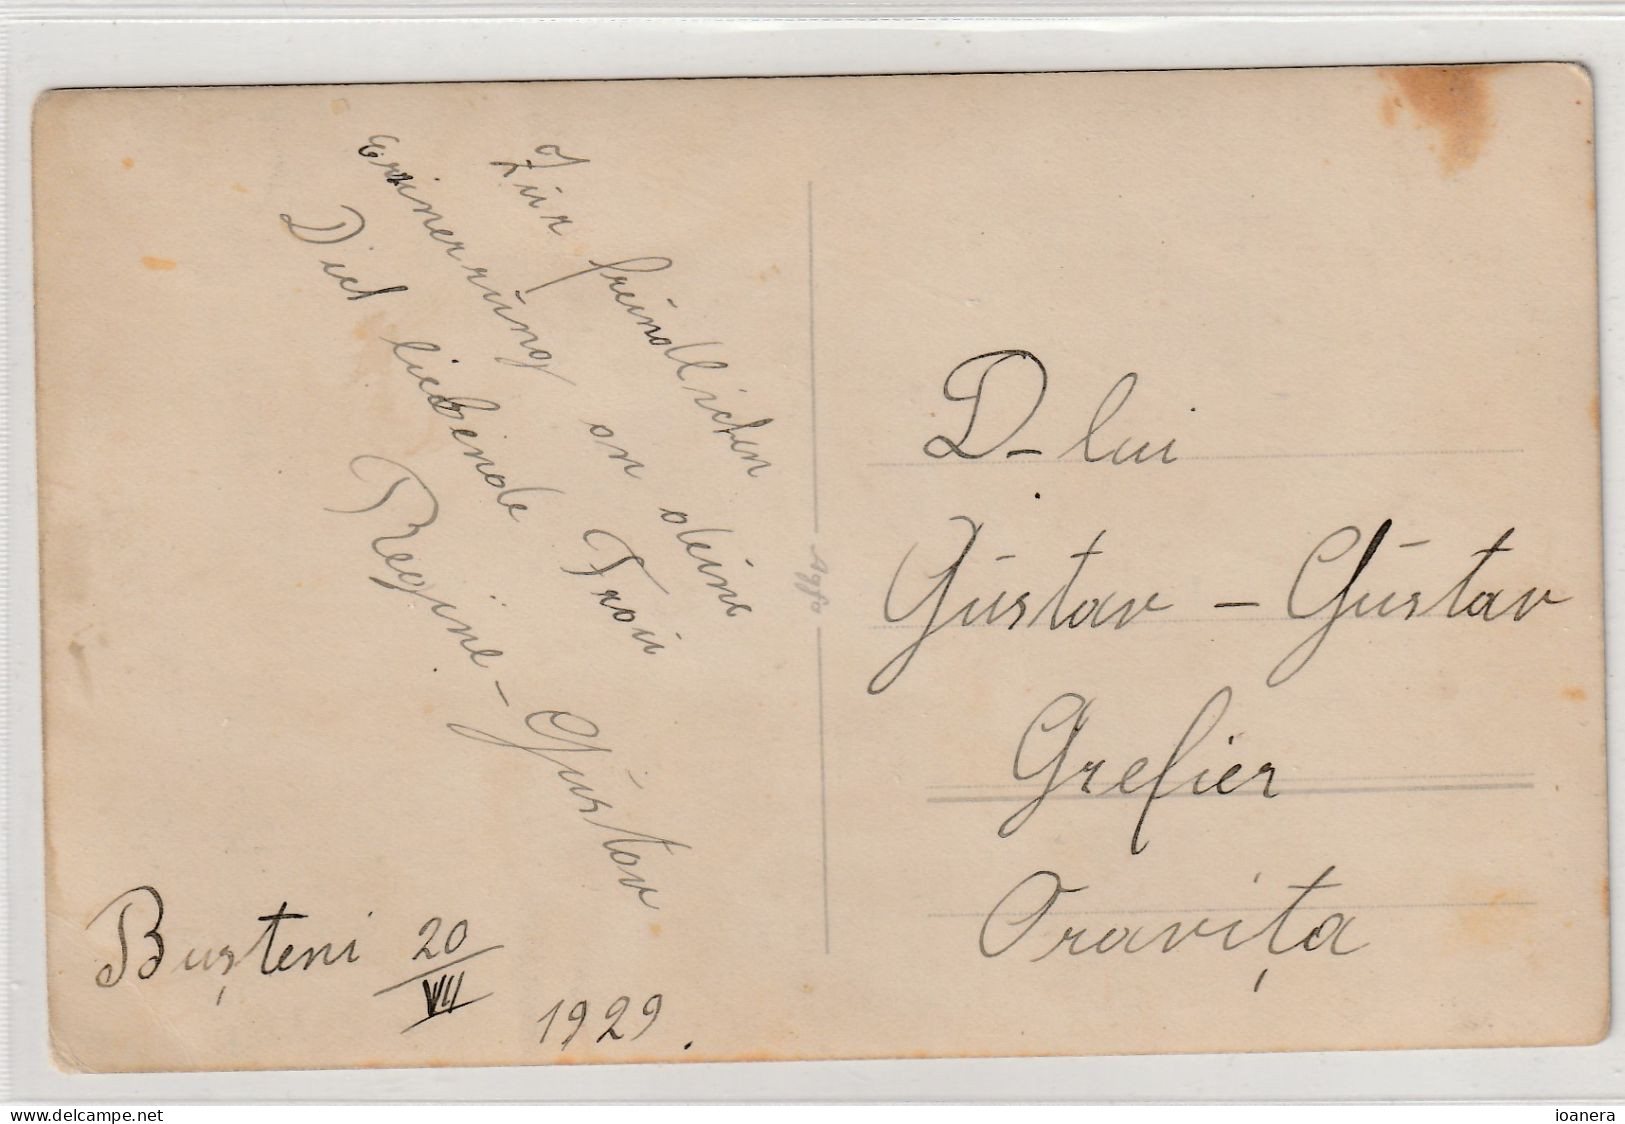 Zür freündlichen
Erinerrüng on deine
Dich liebende Fraü
Regine - Güstav
Bușteni 20/VII 1929.
Agfa
D-lui
Güstav - Güstav
Grefier
Oravița
www.delcampe.net
ioanera